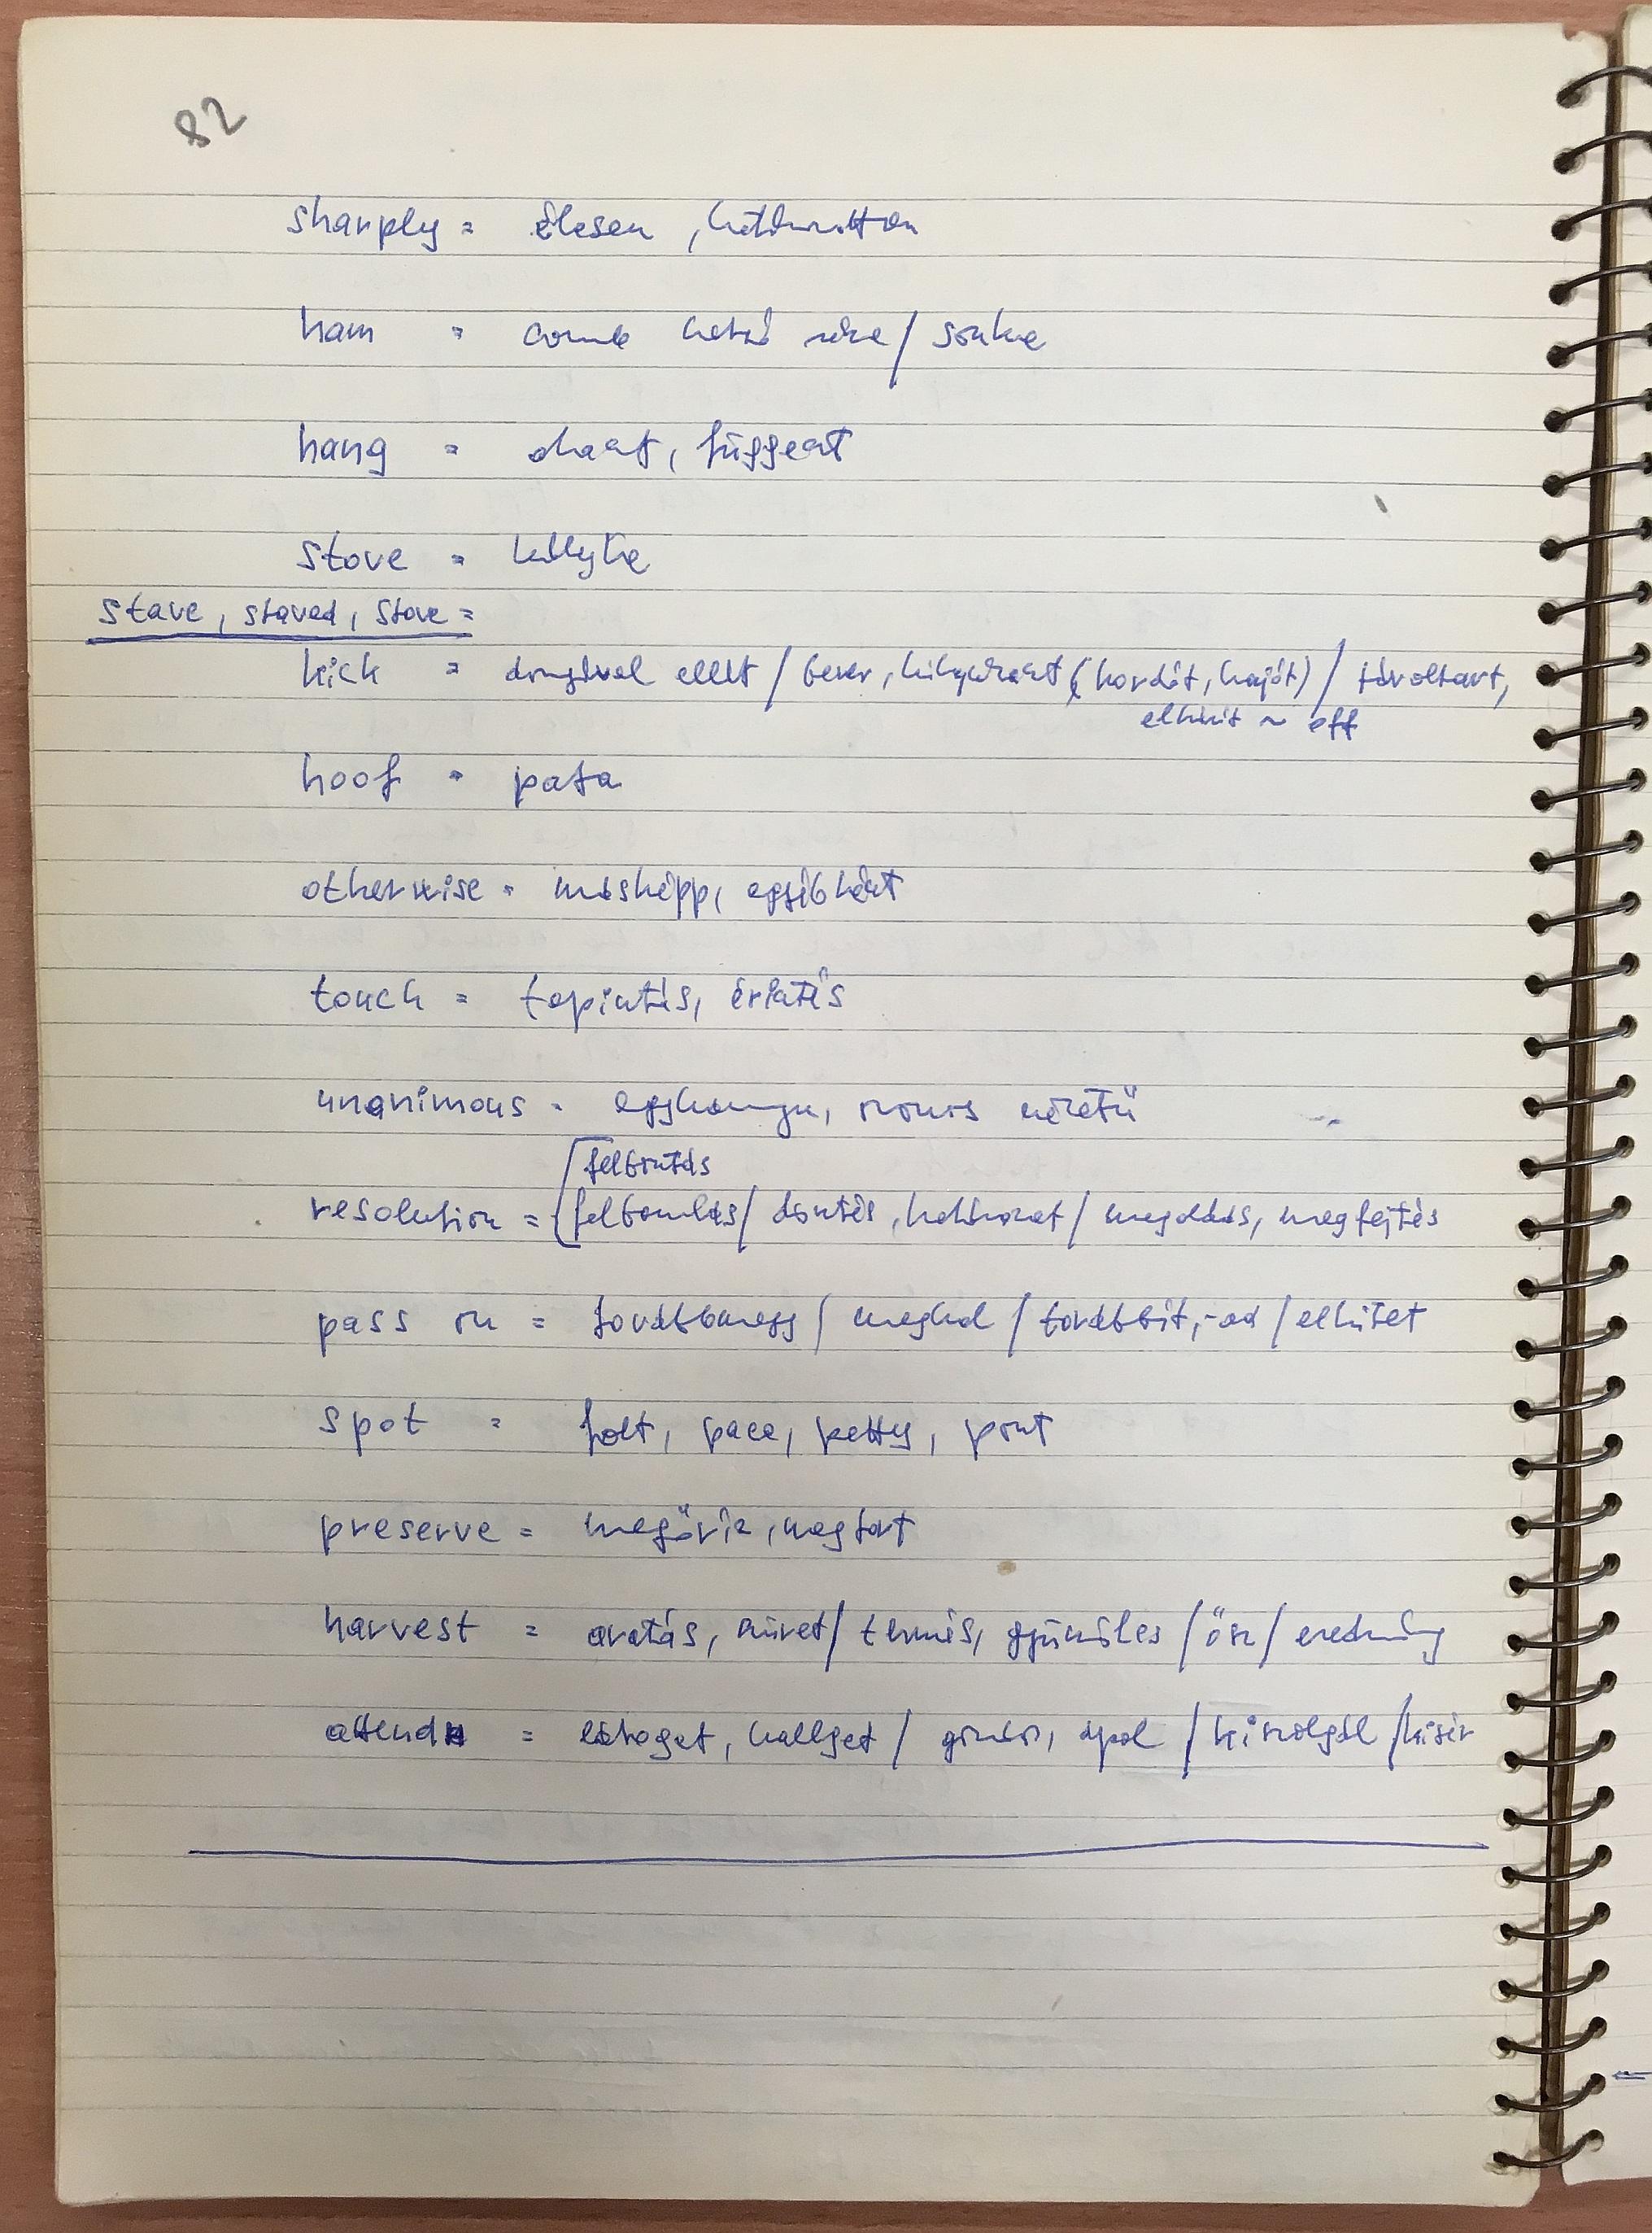 82
sharply = élesen, határozottan
ham = comb hátsó része / sonka
hang = akaszt, függeszt
stove = kályha
stave, staved, stove =
kick = dongával ellát / bever, kilyukaszt (hordót, hajót) / távoltart,
elhárít ~ off
hoof = pata
otherwise = másképp, egyébként
touch = tapintás, érintés
unanimous = egyhangu, azonos nézetü
felbontás
resolution = felbomlás / döntés, határozat / megoldás, megfejtés
pass on = továbbmegy / meghal / továbbít, -ad / elítélet
spot = folt, paca, petty, pont
preserve = megőriz, megtart
harvest = aratás, szüret / termés, gyümölcs / ősz / eredmény
attend = látogat, hallgat / gondoz, ápol / kiszolgál / kisér